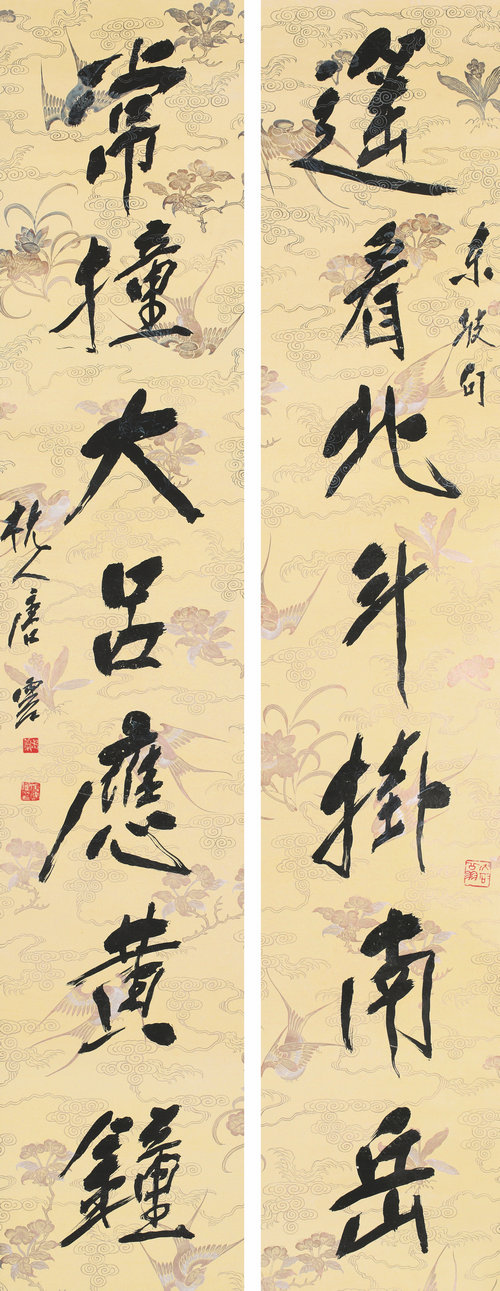 遥看北斗掛南岳
东坡句
常撞大吕應黄鐘
杭人唐雲